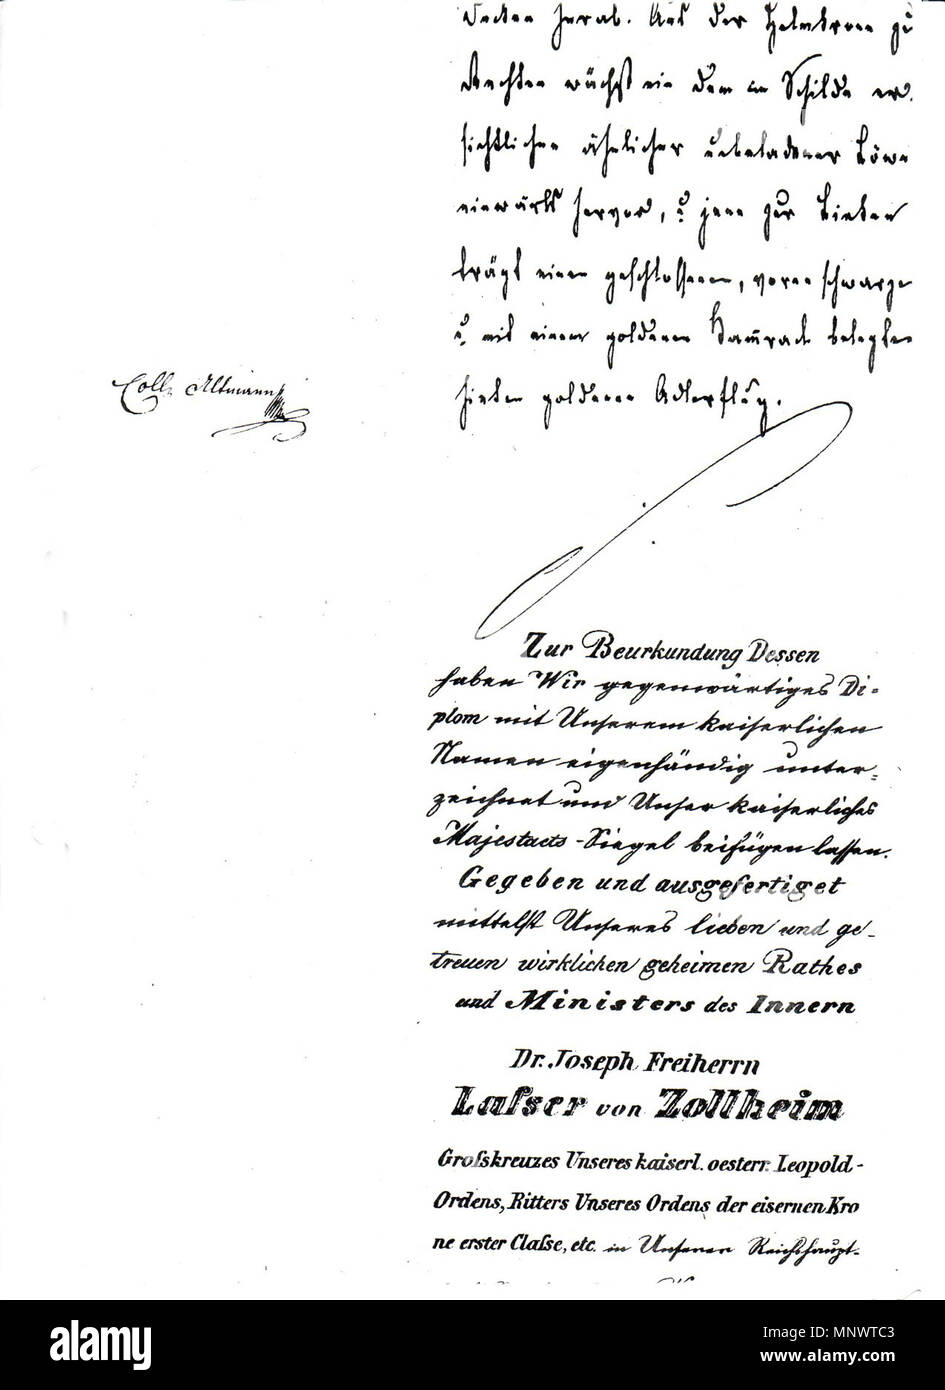 Decken herab. Aus der Helmkrone zu
Rechten wächst ein dem im Schilde er-
sichtlichen ähnlicher Löwe
einwärts hervor, u. jene zur Linken
trägt einen geschlossenen, vorne schwarzen
u. mit einem goldenen Kam̅rade belegten
hinten goldenen Adlerflug.
Coll. Altmann
Zur Beurkundung Dessen
haben Wir gegenwärtiges Di-
plom mit Unserem kaiserlichen
Namen eigenhändig unter-
zeichnet und Unser kaiserliches
Majestaets-Siegel beifügen lassen.
Gegeben und ausgefertiget
mittelst Unseres lieben und ge-
treuen wirklichen geheimen Rathes
und Ministers des Innern
Dr. Joseph Freiherrn
Laſser von Zollheim
Groſskreuzes Unseres kaiserl. oesterr. Leopold-
Ordens, Ritters Unseres Ordens der eisernen Kro
ne erster Claſse, etc. in Unserer Reichshaupt-
alamy
Image ID: MNWTC3
www.alamy.com